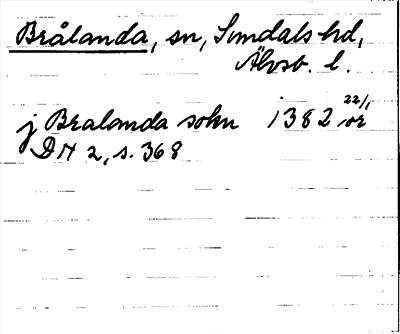 Brålanda, sn, Sundals hd,
Älvsb. l.
j Bralanda sokn 1382 22/1 or
DN 2, s. 368